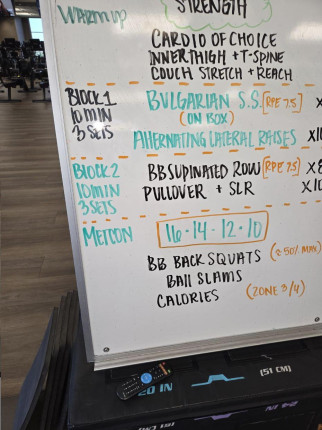 STRENGTH
WARM UP
CARDIO OF CHOICE
INNER THIGH + T-SPINE
COUCH STRETCH + REACH
BLOCK 1
10 MIN
3 SETS
BULGARIAN S.S. [RPE 7.5] X
(ON BOX)
ALTERNATING LATERAL RAISES X10
BLOCK 2
10 MIN
3 SETS
BB SUPINATED ROW [RPE 7.5] X8
PULLOVER + SLR X10
METCON
16 · 14 · 12 · 10
BB BACK SQUATS (≥50% MAX)
BALL SLAMS
CALORIES (ZONE 3/4)
20 IN
(51 CM)
24 IN